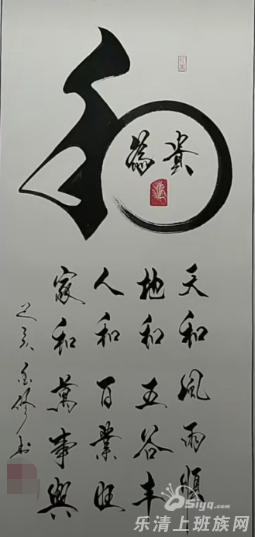 和
為貴
天和風雨順
地和五谷丰
人和百業旺
家和萬事興
己亥
书
Siyq.com
乐清上班族网